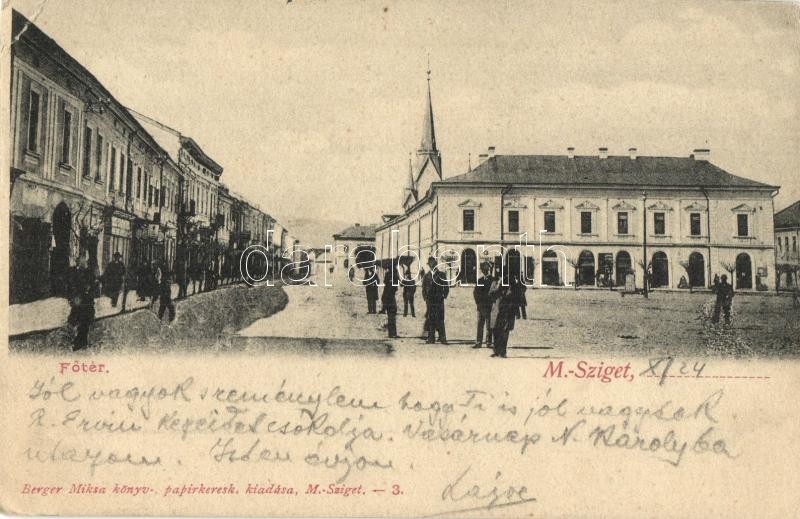 darabanth
Főtér.
M.-Sziget, X/24
Jól vagyok szeménylem hogy Ti is jól vagytok
R. Ervin Kezeidet csókolja. Vasárnap N. Károlyba
utazom. Isten óvjon.
Lajos
Berger Miksa könyv-, papirkeresk. kiadása, M.-Sziget. — 3.